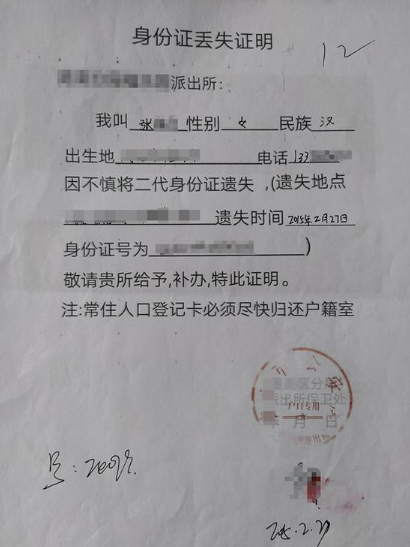 身份证丢失证明
12
派出所:
我叫 张 性别 女 民族 汉
出生地 电话 133
因不慎将二代身份证遗失,(遗失地点
遗失时间 2015年2月27日
身份证号为 )
敬请贵所给予,补办,特此证明。
注:常住人口登记卡必须尽快归还户籍室
区分局
派出所保卫处
户口专用
年 月 日